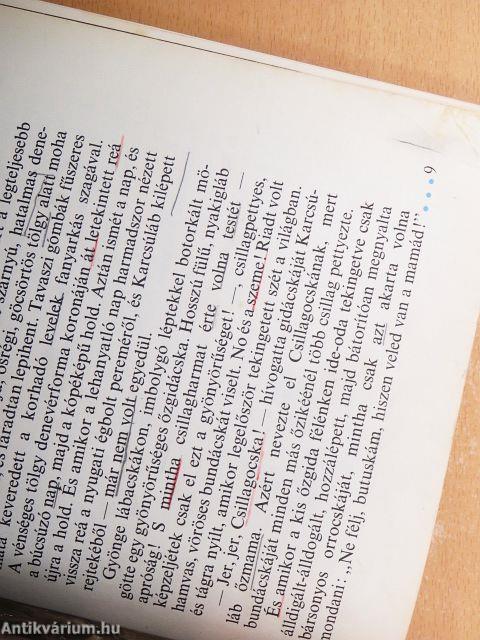 szárnyi, hatalmas dene-
és fáradtan lepihent. ősrégi, göcsörtös tölgy alatt moha
keveredett a korhadó levelek fanyarkás szagával.
A vénséges tölgy denevérforma koronáján át letekintett reá
a búcsúzó nap, majd a kópéképű hold. Aztán ismét a nap, és
újra a hold. És amikor a lehanyatló nap harmadszor nézett
vissza reá a nyugati égbolt pereméről, és Karcsúláb kilépett
rejtekéből — már nem volt egyedül.
Gyönge lábacskákon, imbolygó léptekkel botorkált mö-
götte egy gyönyörűséges őzgidácska. Hosszú fülű, nyakigláb
apróság! S mintha csillagharmat érte volna testét —
képzeljétek csak el ezt a gyönyörűséget! —, csillagpettyes,
hamvas, vöröses bundácskát viselt. No és a szeme! Riadt volt
és tágra nyílt, amikor legelőször tekingetett szét a világban.
— Jer, jer, Csillagocska! — hívogatta gidácskáját Karcsú-
láb őzmama. Azért nevezte el Csillagocskának, mert
bundácskáját minden más őzikéénél több csillag pettyezte.
És amikor a kis őzgida félénken ide-oda tekingetve csak
álldogált-álldogált, hozzálépett, majd bátorítóan megnyalta
bársonyos orrocskáját, mintha csak azt akarta volna
mondani: „Ne félj, butuskám, hiszen veled van a mamád!”
9
Antikvárium.hu